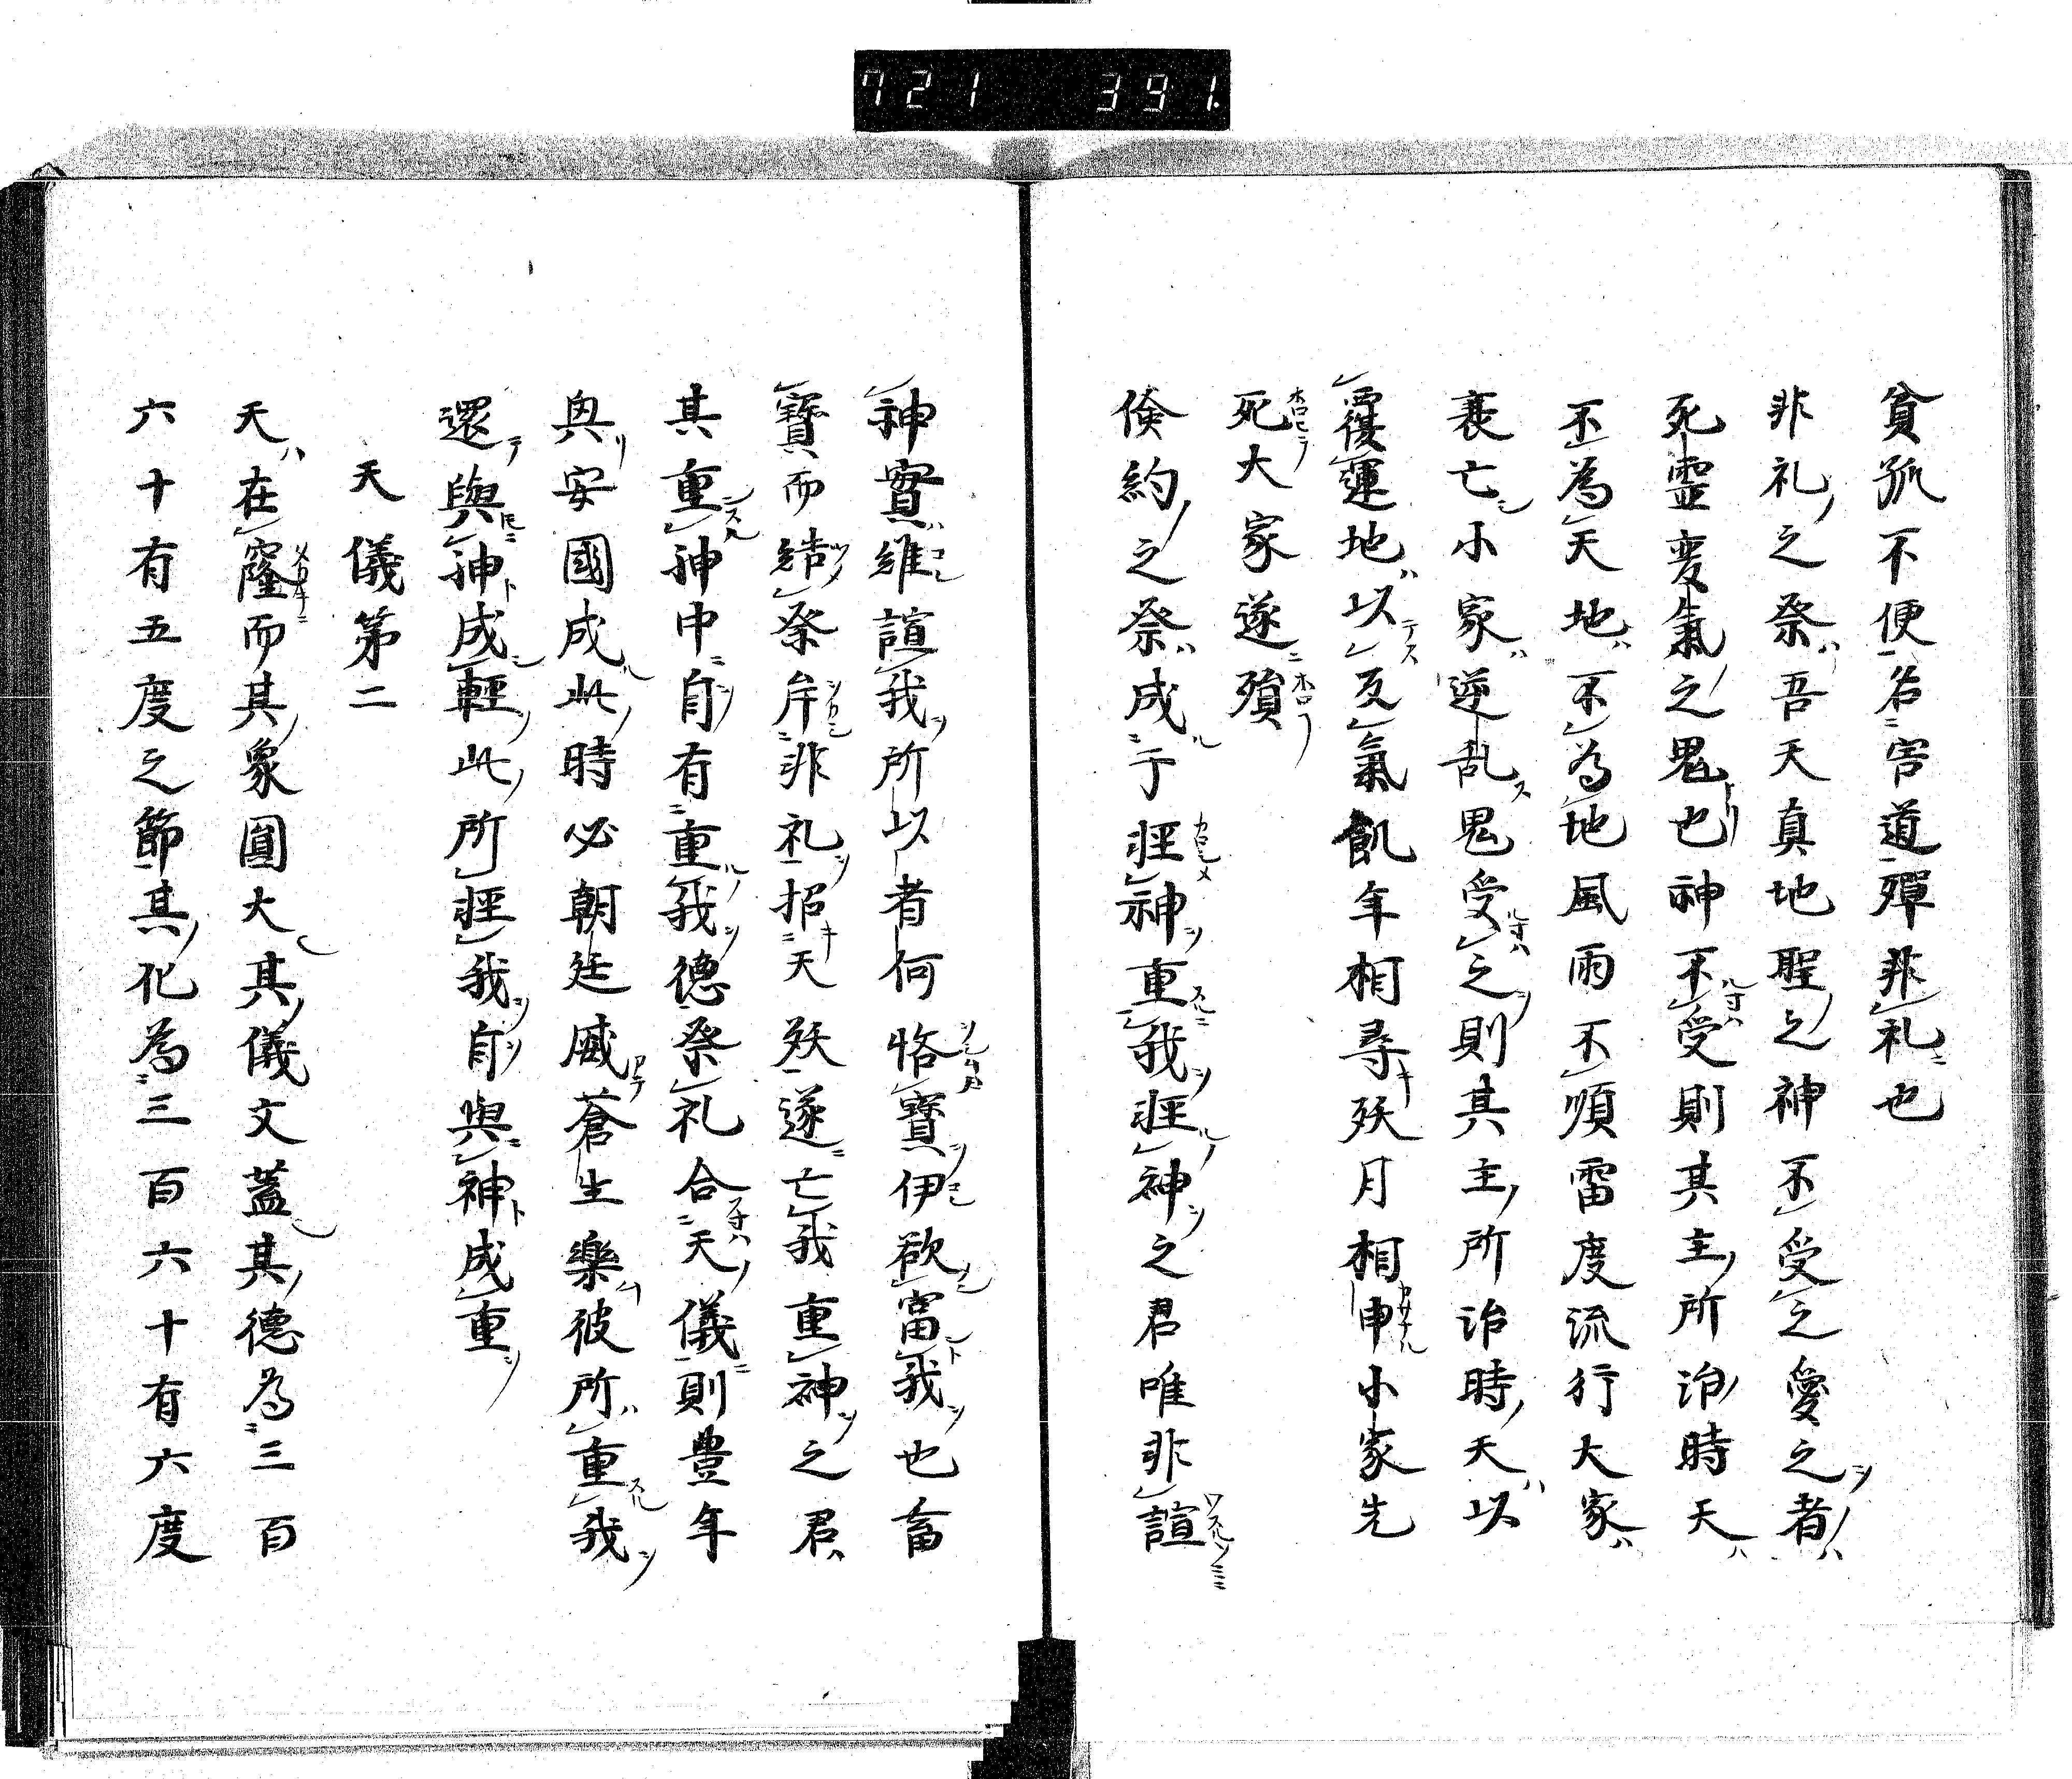 721 391.
貧孤不便名害道殫非礼也
非礼之祭吾天真地聖之神不受之愛之者
死霊変氣之鬼也神不受則其主所治時天
不為天地不為地風雨不順雷度流行大家
衰亡小家逆乱鬼受之則其主所治時天以
覆運地以互氣飢年相尋殀月相申小家先
死大家遂殞
倹約之祭成于軽神重我軽神之君唯非諠
神實維諠我所以者何悋寳伊欲富我也畜
寳而結祭牟非礼招天殀遂亡我重神之君
其重神中自有重我徳祭礼合天儀則豊年
與安國成此時必朝廷盛蒼生樂彼所重我
還與神成輕此所軽我自與神成重
天儀第二
天在窿而其象圓大其儀文蓋其徳為三百
六十有五度之節其化為三百六十有六度